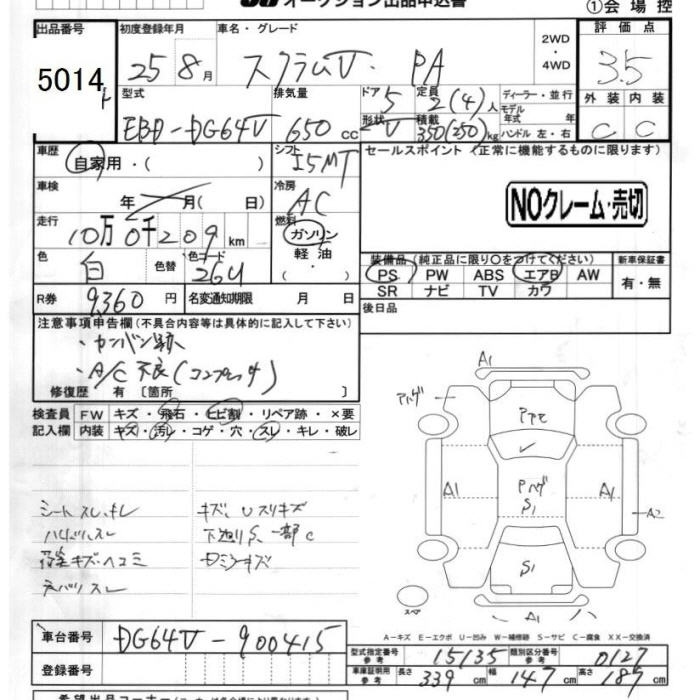 オークション出品申込書 ①会場控
出品番号 初度登録年月 車名・グレード 2WD・4WD 評価点
5014 25年8月 スクラムV・PA 3.5
型式 排気量 ドア 定員 ディーラー・並行 外装 内装
EBD-DG64V 650cc 5 2(4)人 モデル年式 年 C C
形状 V 積載 350(250)kg ハンドル 左・右
車歴 シフト セールスポイント (正常に機能するものに限ります)
自家用・( ) I5MT
車検 冷房
年 月( 日) AC NOクレーム・売切
走行 燃料
10万0千209km ガソリン
軽油
・( )
色 色替 色コード 装備品 (純正品に限り○をつけてください) 新車保証書
白 26U PS PW ABS エアB AW 有・無
SR ナビ TV カワ
R券 9,360円 名変通知期限 月 日 後日品
注意事項申告欄 (不具合内容等は具体的に記入して下さい)
・カンバン跡
・A/C不良(コンプレッサ)
修復歴 有 [箇所 ]
検査員 FW キズ・飛石・ヒビ割・リペア跡・×要
記入欄 内装 キズ・汚レ・コゲ・穴・スレ・キレ・破レ
シートスレ、キレ キズ、Uスリキズ
ハンドルスレ 下廻りS、一部C
荷室キズ・ヘコミ
A1
A1 A1 A2
S1
S1
A1
スペア
A-キズ E-エクボ U-凹み W-補修跡 S-サビ C-腐食 XX-交換済
車台番号 DG64V-900415
型式指定番号 参考 15135 類別区分番号 参考 0127
登録番号 車庫証明用 参考 長さ 339cm 幅 147cm 高さ 187cm
希望出品コーナー